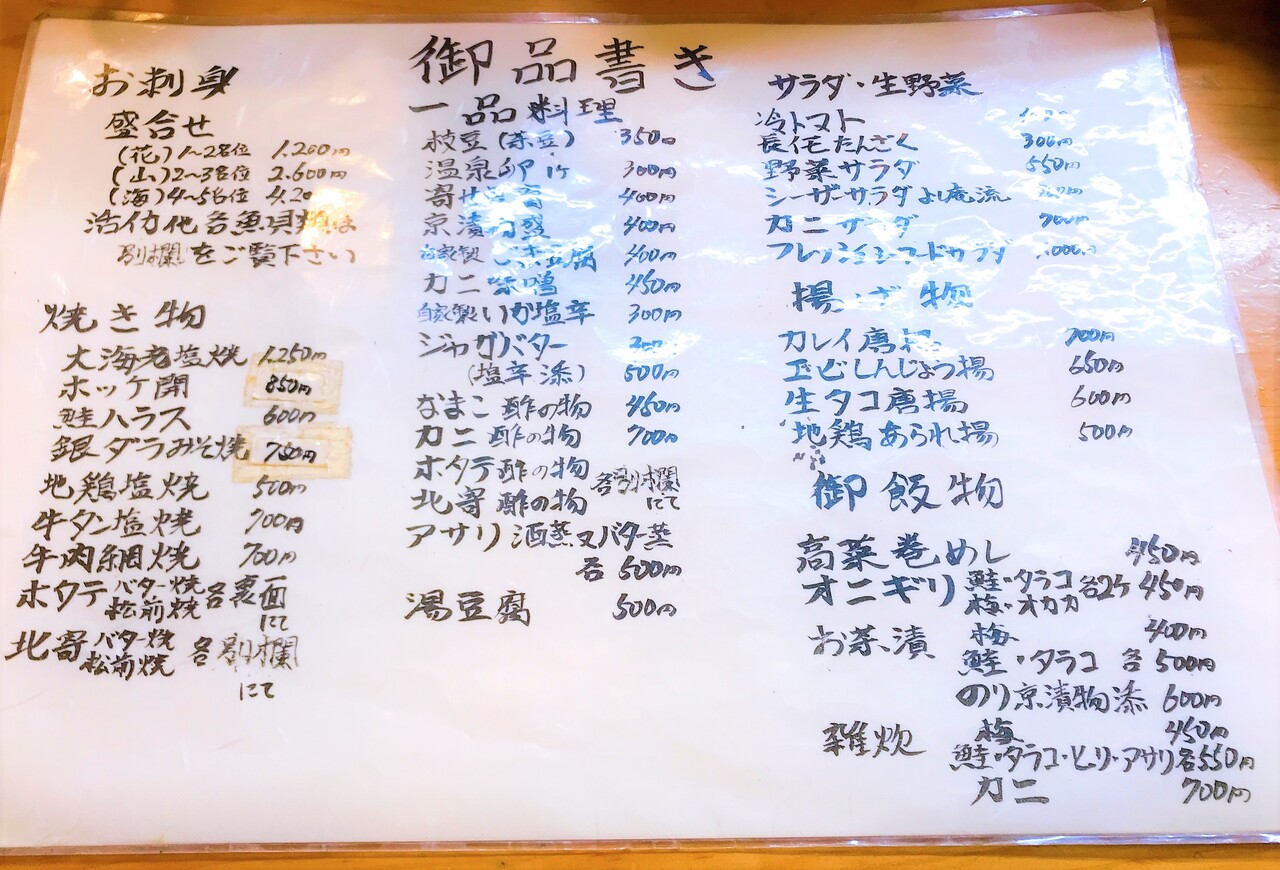 御品書き
お刺身
盛合せ
(花)1~2名位 1.200円
(山)2~3名位 2.600円
(海)4~5名位 4.20
活イカ他各魚貝類は
別欄をご覧下さい
焼き物
大海老塩焼 1.250円
ホッケ開 850円
鮭ハラス 600円
銀ダラみそ焼 780円
地鶏塩焼 500円
牛タン塩焼 700円
牛肉網焼 700円
ホタテ バター焼 松前焼 各裏面
にて
北寄 バター焼 松前焼 各別欄
にて
一品料理
枝豆(茶豆) 350円
温泉卵 300円
寄せ 400円
京漬 盛 400円
自家製 豆腐 400円
カニ味噌 450円
自家製いか塩辛 300円
ジャガバター
(塩辛添) 500円
なまこ酢の物 450円
カニ酢の物 700円
ホタテ酢の物
北寄酢の物 各別欄にて
アサリ酒蒸又バター蒸
各500円
湯豆腐 500円
サラダ・生野菜
冷トマト
長イモたんざく 300円
野菜サラダ 550円
シーザーサラダよし庵流
カニサラダ 700円
フレッシュシーフードサラダ 1.000円
揚げ物
カレイ唐揚 700円
エビしんじょう揚 650円
生タコ唐揚 600円
地鶏あられ揚 500円
御飯物
高菜巻めし 450円
オニギリ 鮭・タラコ 梅・オカカ 各2ケ 450円
お茶漬 梅 400円
鮭・タラコ 各500円
のり京漬物添 600円
雑炊 梅 450円
鮭・タラコ・ヒリ・アサリ各550円
カニ 700円